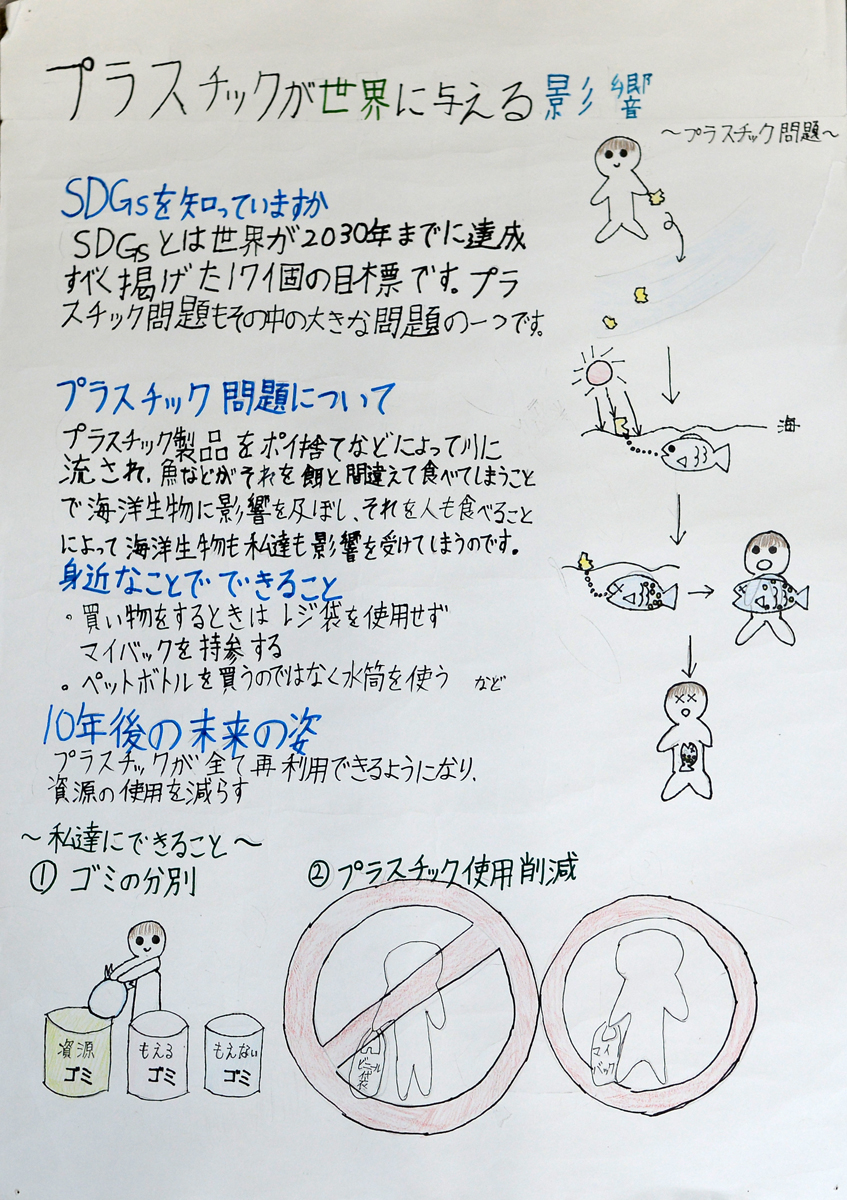 プラスチックが世界に与える影響
~プラスチック問題~
SDGsを知っていますか
SDGsとは世界が2030年までに達成
すべく掲げた17個の目標です。プラ
スチック問題もその中の大きな問題の一つです。
プラスチック問題について
プラスチック製品をポイ捨てなどによって川に
流され、魚などがそれを餌と間違えて食べてしまうこと
で海洋生物に影響を及ぼし、それを人も食べること
によって海洋生物も私達も影響を受けてしまうのです。
海
身近なことでできること
・買い物をするときはレジ袋を使用せず
マイバックを持参する
・ペットボトルを買うのではなく水筒を使う など
10年後の未来の姿
プラスチックが全て再利用できるようになり、
資源の使用を減らす
~私達にできること~
① ゴミの分別
② プラスチック使用削減
資源
ゴミ
もえる
ゴミ
もえない
ゴミ
ビニール
袋
マイ
バック